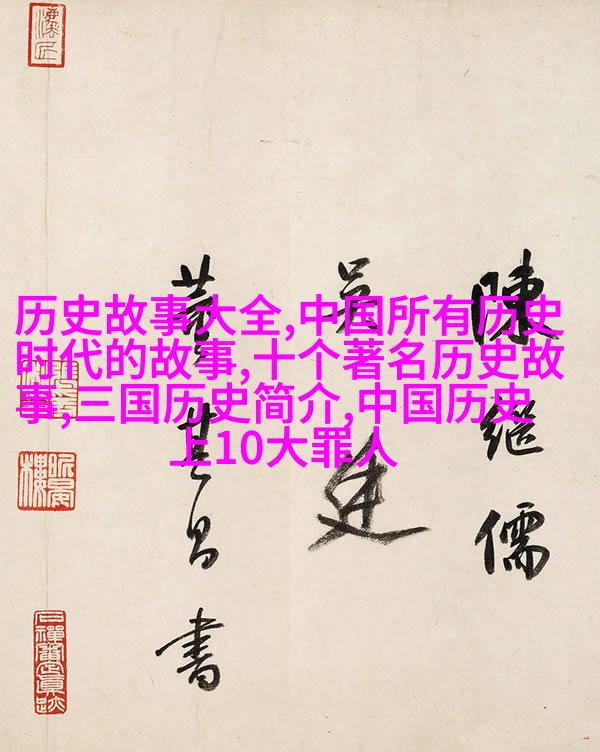 历史故事大全,中国所有历史
时代的故事,十个著名历史故
事,三国历史简介,中国历史
上10大罪人
陳繼儒
吳廷
董其昌書